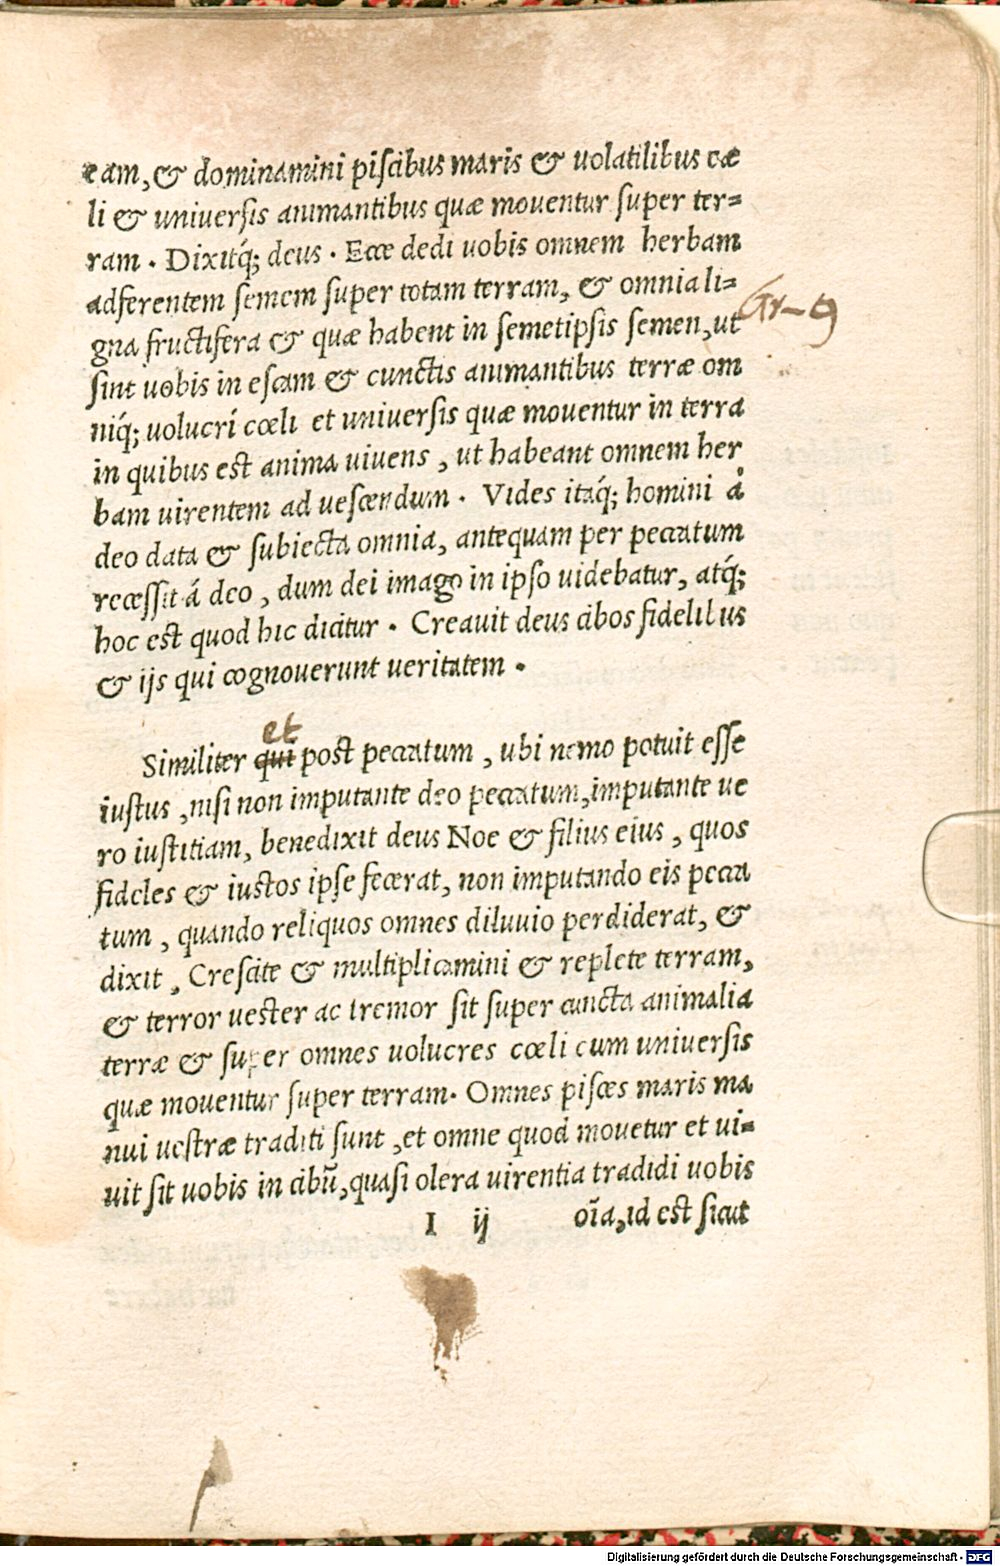 eam, & dominamini piscibus maris & uolatilibus cæ
li & universis animantibus quæ moventur super ter=
ram . Dixitq́; deus . Ecce dedi uobis omnem herbam
adferentem semem super totam terram, & omnia li=
gna fructifera & quæ habent in semetipsis semen, ut
sint uobis in escam & cunctis animantibus terræ om
niq́; uolucri cœli et universis quæ moventur in terra
in quibus est anima uiuens , ut habeant omnem her
bam uirentem ad uescendum . Vides itaq́; homini à
deo data & subiecta omnia, antequam per peccatum
recessit á deo , dum dei imago in ipso uidebatur, atq́;
hoc est quod hic dicitur . Creavit deus cibos fidelibus
& ijs qui cognoverunt veritatem .
et
Similiter qui post peccatum , ubi nemo potuit esse
iustus , nisi non imputante deo peccatum, imputante ue
ro iustitiam, benedixit deus Noe & filius eius , quos
fideles & iustos ipse fecerat, non imputando eis pecca
tum , quando reliquos omnes diluuio perdiderat, &
dixit , Crescite & multiplicamini & replete terram,
& terror uester ac tremor sit super cuncta animalia
terræ & super omnes uolucres cœli cum universis
quæ mouentur super terram. Omnes pisces maris ma
nui uestræ traditi sunt , et omne quod mouetur et ui=
uit sit uobis in cibũ, quasi olera uirentia tradidi uobis
I ij oĩa, id est sicut
Digitalisierung gefördert durch die Deutsche Forschungsgemeinschaft - DFG